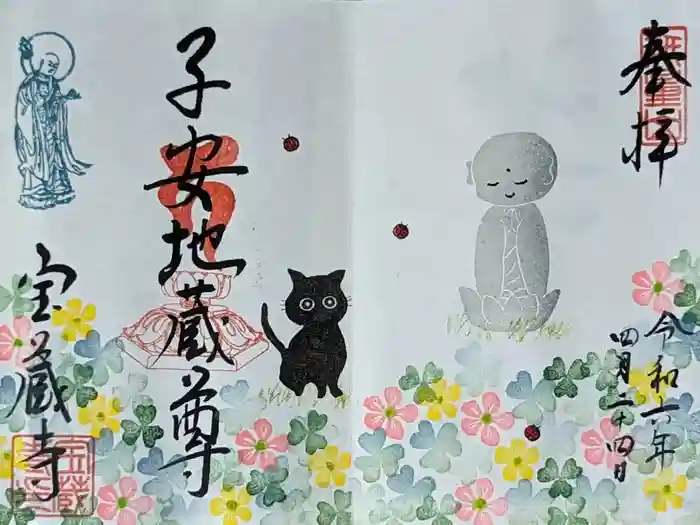 奉拝
令和六年
四月二十四日
子安地蔵尊
宝蔵寺